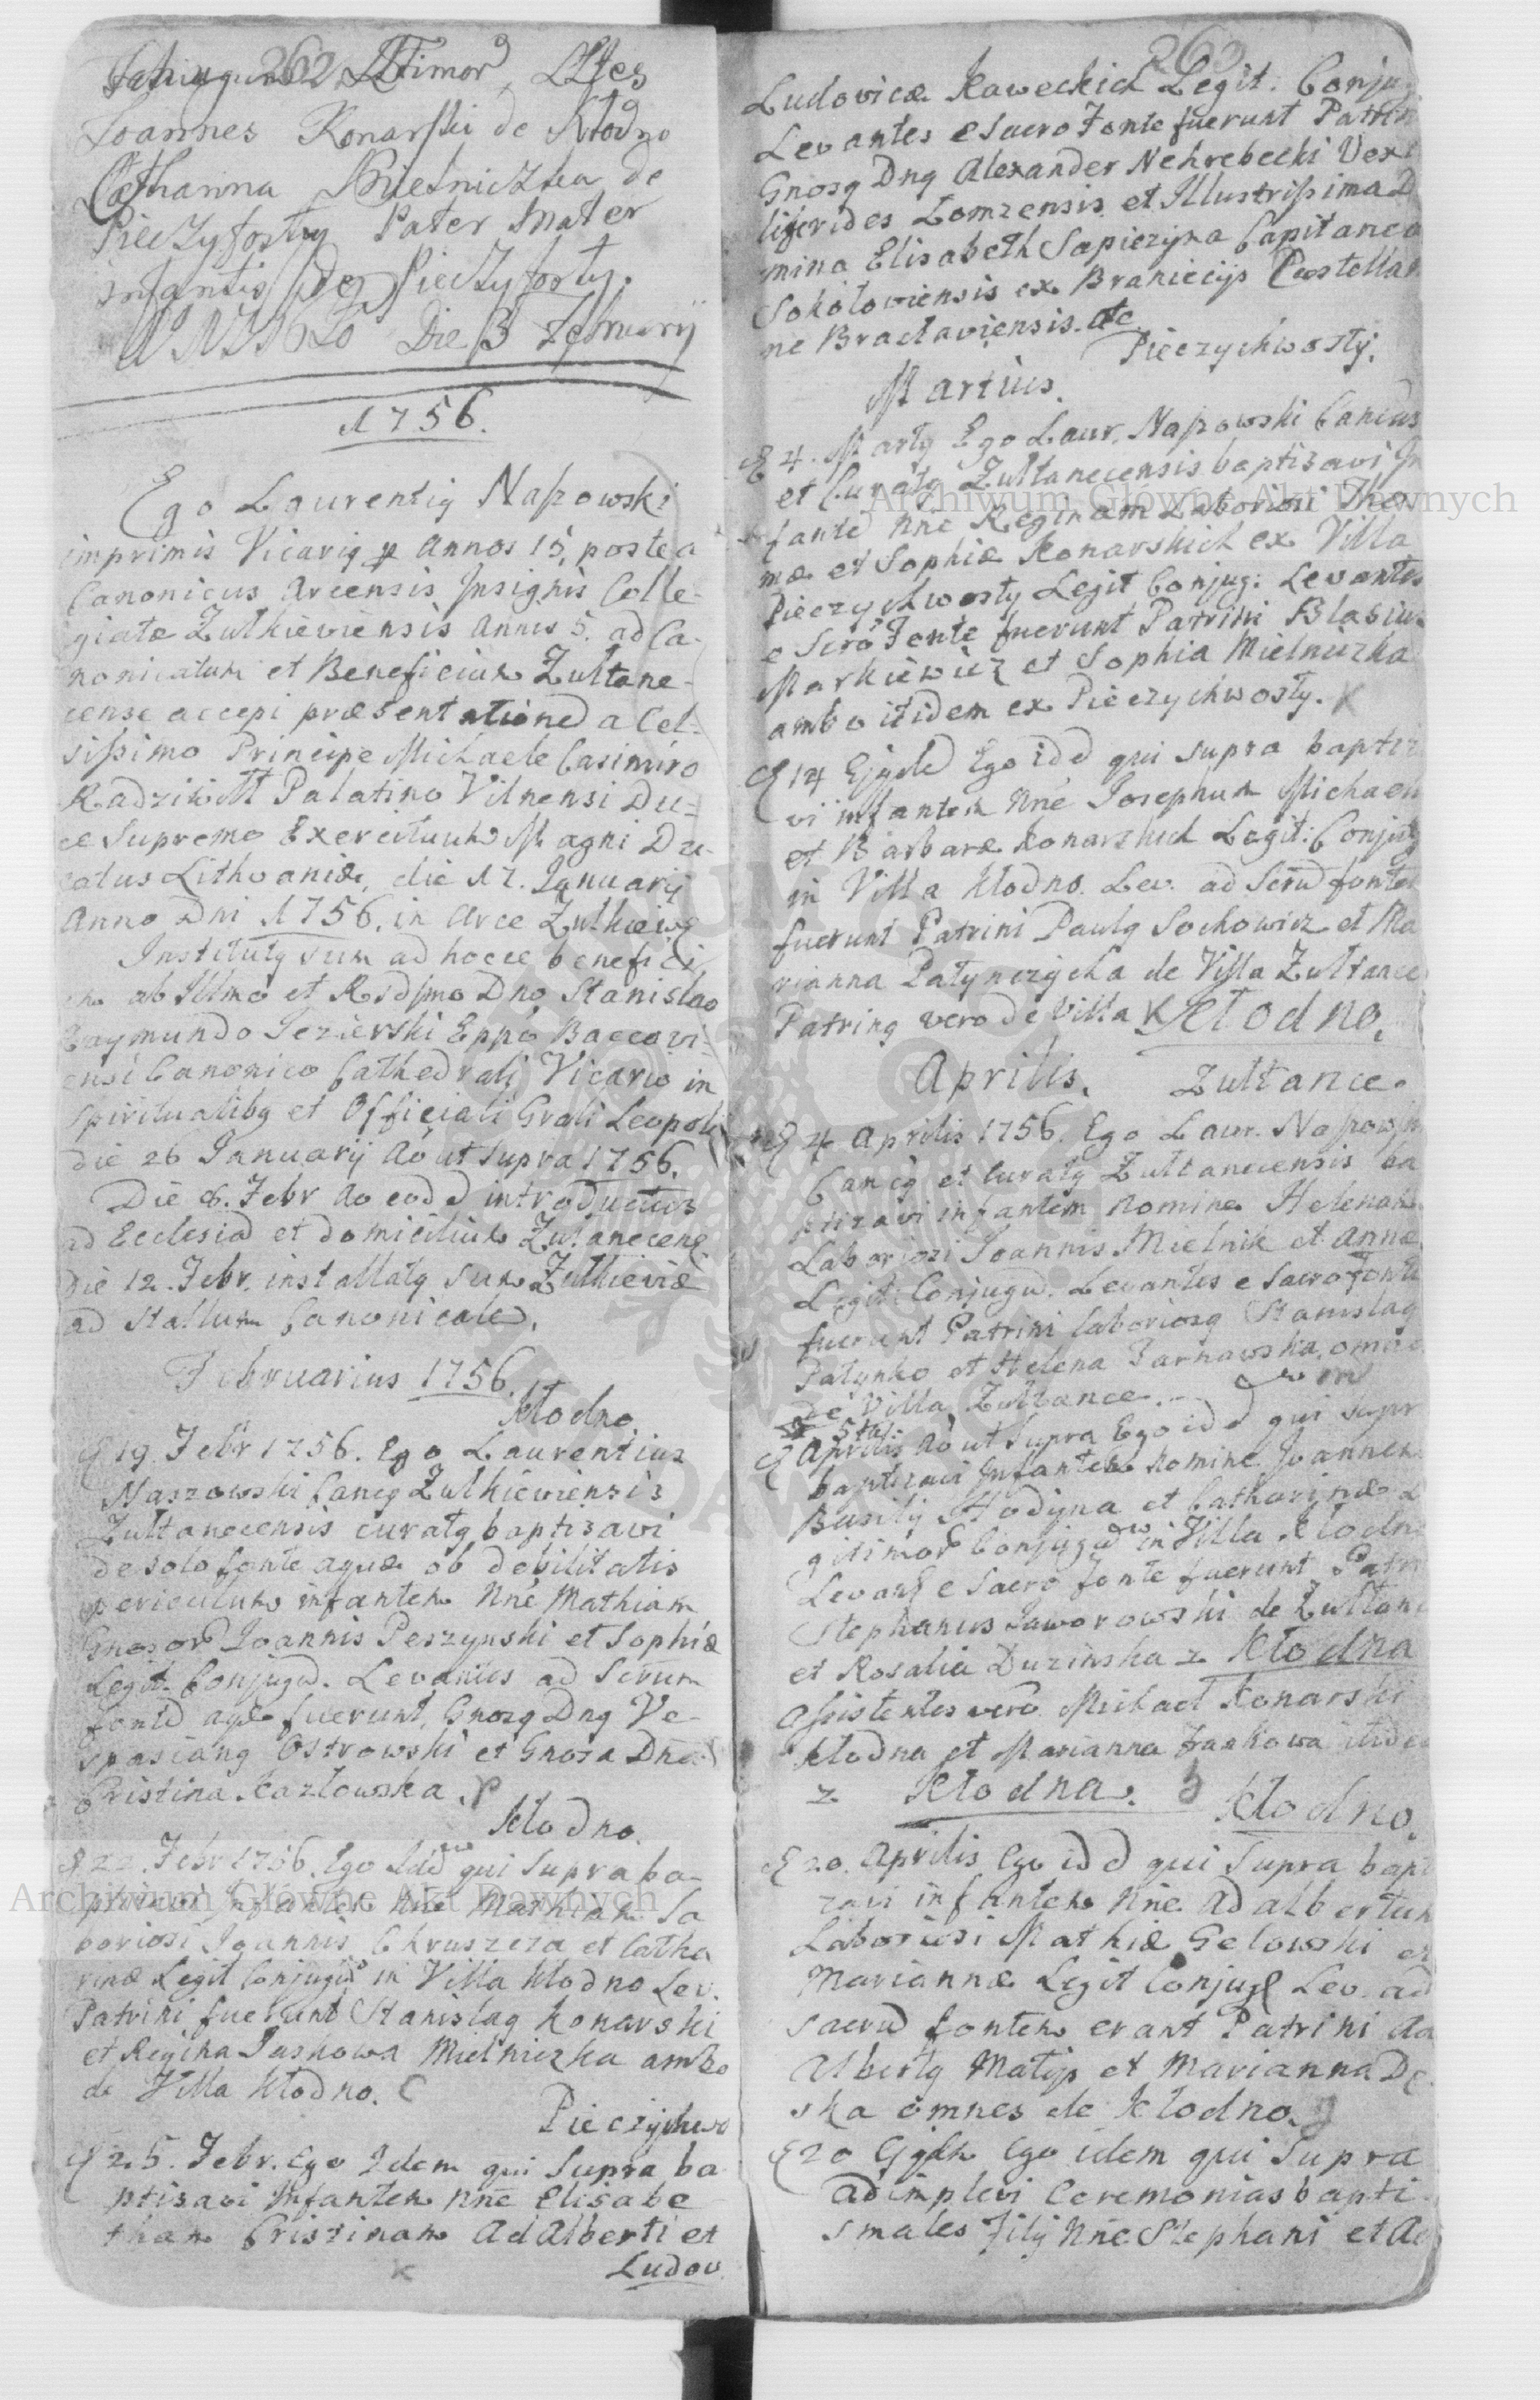 262
Ltimor, LLtes
Joannes Konarski de Kłodno
Catharina Mielniczka de
Pieczyfosty Pater Mater
infantis de Pieczyfosty.
Die 3 February
1756.
Ego Laurentiq Naszowski
imprimis Vicariq p annos 15, postea
Canonicus Arcensis Insignis Colle-
giatæ Zulkieviensis annis 5. ad Ca-
nonicatum et Beneficium Zułtane-
cense accepi præsentationed a Cel-
sissimo Principe Michaele Casimiro
Radziwiłł Palatino Vilnensi Du-
ce Supremo Exercituum Magni Du-
catus Lithvaniæ, die 17. January
Anno Dni 1756. in Arce Zulkiewę
Institutq sum ad hocce benefici
um ab Illmo et Rsdsmo Dno Stanislao
Raymundo Jezierski Eppo Baccovi-
ensi Canonico Cathedrali Vicario in
Spiritualibq et Officiali Grali Leopoli
die 26 January Ao ut supra 1756.
Die 8. Febr Ao eodd introductus
ad Ecclesiad et domicilium Zułanecens
Die 12. Febr. installatq sum Zulkieviæ
ad Stallum Canonicale.
Februarius 1756.
Kłodno
19 Febr 1756. Ego Laurentius
Naszowski Cancq Zulkieviensis
Zułtanecensis curatq baptisavi
de solo fonte aquæ ob debilitatis
periculum infantem Nne Mathiam
Gnosor Joannis Peszynski et Sophiæ
Legit. Conjugd. Levantes ad Scrum
fontd aqæ fuerunt, Gnosq Dnq Ve-
spasianq Ostrowski et Gnosa Dna
Cristina Kazłowska.
Kłodno.
22. Febr 1756. Ego Idd qui supra ba-
ptisavi Infantem Nne Mathiam La
boriosi Joannis Chruszcza et Catha
rinæ Legit Conjugd in Villa Kłodno Lev.
Patrini fuerunt Stanislaq Konarski
et Regina Jaskowa Mielniczka ambo
de Villa Kłodno.
Pieczychwo
25. Febr. Ego Idem qui Supra ba
ptisavi Infantem Nne Elisabe
tham Cristinam Adalberti et
Ludov
263
Ludovicæ Kaweckich Legit: Conjug
Levantes e Sacro Fonte fuerunt Patrin
Gnosq Dnq Alexander Nehrebecki Vexi
liferides Lomzensis et Illustrissima D
mina Elisabeth Sapiezyna Capitanea
Sokołoviensis ex Branicijs Castellan
ne Bractaviensis. etc
Pieczychwosty.
Martius.
4. Martij Ego Laur. Naszowski Cancus
et Curatq Zułtanecensis baptisavi In
fante Nne Reginam Laboriosi Tho
mæ et Sophiæ Konarskich ex Villa
Pieczychwosty Legit Conjug: Levantes
e Scro Fonte fuerunt Patrini Blasius
Markiewicz et Sophia Mielniczka
ambo itidem ex Pieczychwosty.
14 Ejqdd Ego idd qui supra baptiz
vi infantem Nne Josephum Michaeli
et Barbaræ Konarskich Legit: Conjug
in Villa Kłodno. Lev. ad Scrud fontem
fuerunt Patrini Paulq Sochowicz et Ma
rianna Patynczycha de Villa Zułtance
Patrinq vero de Villa Kłodno.
Aprilis. Zułtance.
4 Aprilis 1756. Ego Laur. Naszowski
Cancq et Curatq Zułtanecensis ba
ptizavi infantem Nomine Helenam
Laboriosi Joannis Mielnik et Annæ
Legit: Conjugd. Levantes e Sacro fonte
fuerunt Patrini laboriosq Stanislaq
Patynko et Helena Tarnawska, omnes
de Villa Zułtance.
5ta.
Aprilis Ao ut supra Ego idd qui supr
baptizavi Infantem Nomine Joannem
Basilij Hodyna et Catharinæ L
gitimor Conjugd in Villa Kłodno
Levant e Sacro fonte fuerunt Patri
Stephanus Jaworowski de Zułtan
et Rosalia Duzinska z Kłodna
Assistentes vero Michael Konarski
Kłodna et Marianna Jankowa itidem
z Kłodna.
Kłodno.
20. Aprilis Ego idd qui Supra bapt
zavi infantem Nne Adalbertum
Laboriosi Mathiæ Gelowski et
Mariannæ Legit Conjug Lev. ad
sacrud fontem erant Patrini Ad
Albertq Matys et Marianna De
ska omnes de Kłodno.
20 Ejqdm Ego idem qui Supra
adimplevi Ceremonias bapti
smales Filij Nne Stephani et Ad
Archiwum Główne Akt Dawnych
Archiwum Główne Akt Dawnych